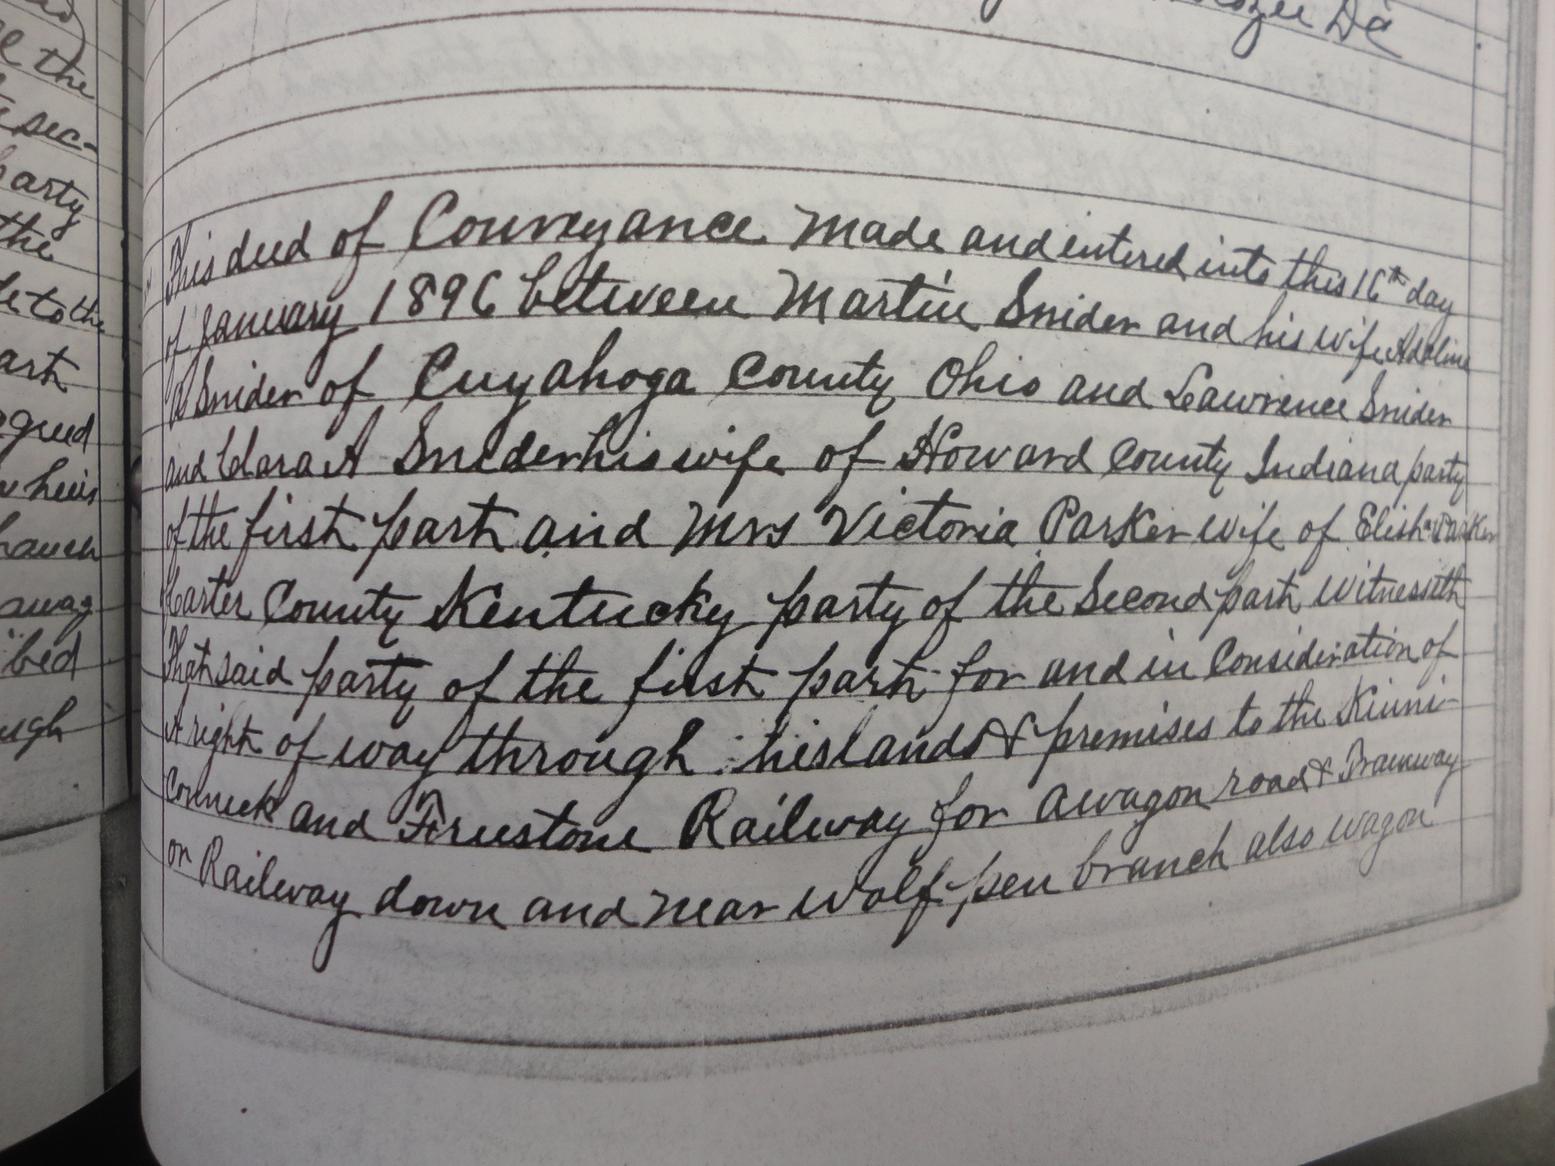 the
sec-
party
the
to the
art
agreed
heirs
branch
bed
De
This deed of Conveyance Made and entered into this 16th day
of January 1896 between Martin Snider and his wife Adaline
Snider of Cuyahoga County Ohio and Lawrence Snider
and Clara A Snider his wife of Howard County Indiana party
of the first part and Mrs Victoria Parker wife of Elisha Parker
Carter County Kentucky party of the Second part Witnesseth
That said party of the first part for and in Consideration of
A right of way through his lands & premises to the Kinni-
conneck and Freestone Railway for a wagon road & Tramway
or Railway down and near Wolf pen branch also wagon